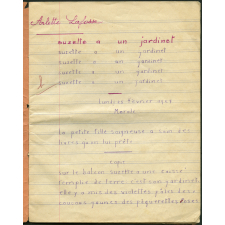 suzette a un jardinet
suzette a un jardinet
suzette a un jardinet
suzette a un jardinet
suzette a un jardinet
lundi février
Morale
La petite fille soigneuse a soin des
livres qu'on lui prête
copie
sur le balcon suzette a une caisse
remplie de terre c'est son jardinet
elle y a mis des violettes
jaunes des pâquerettes roses